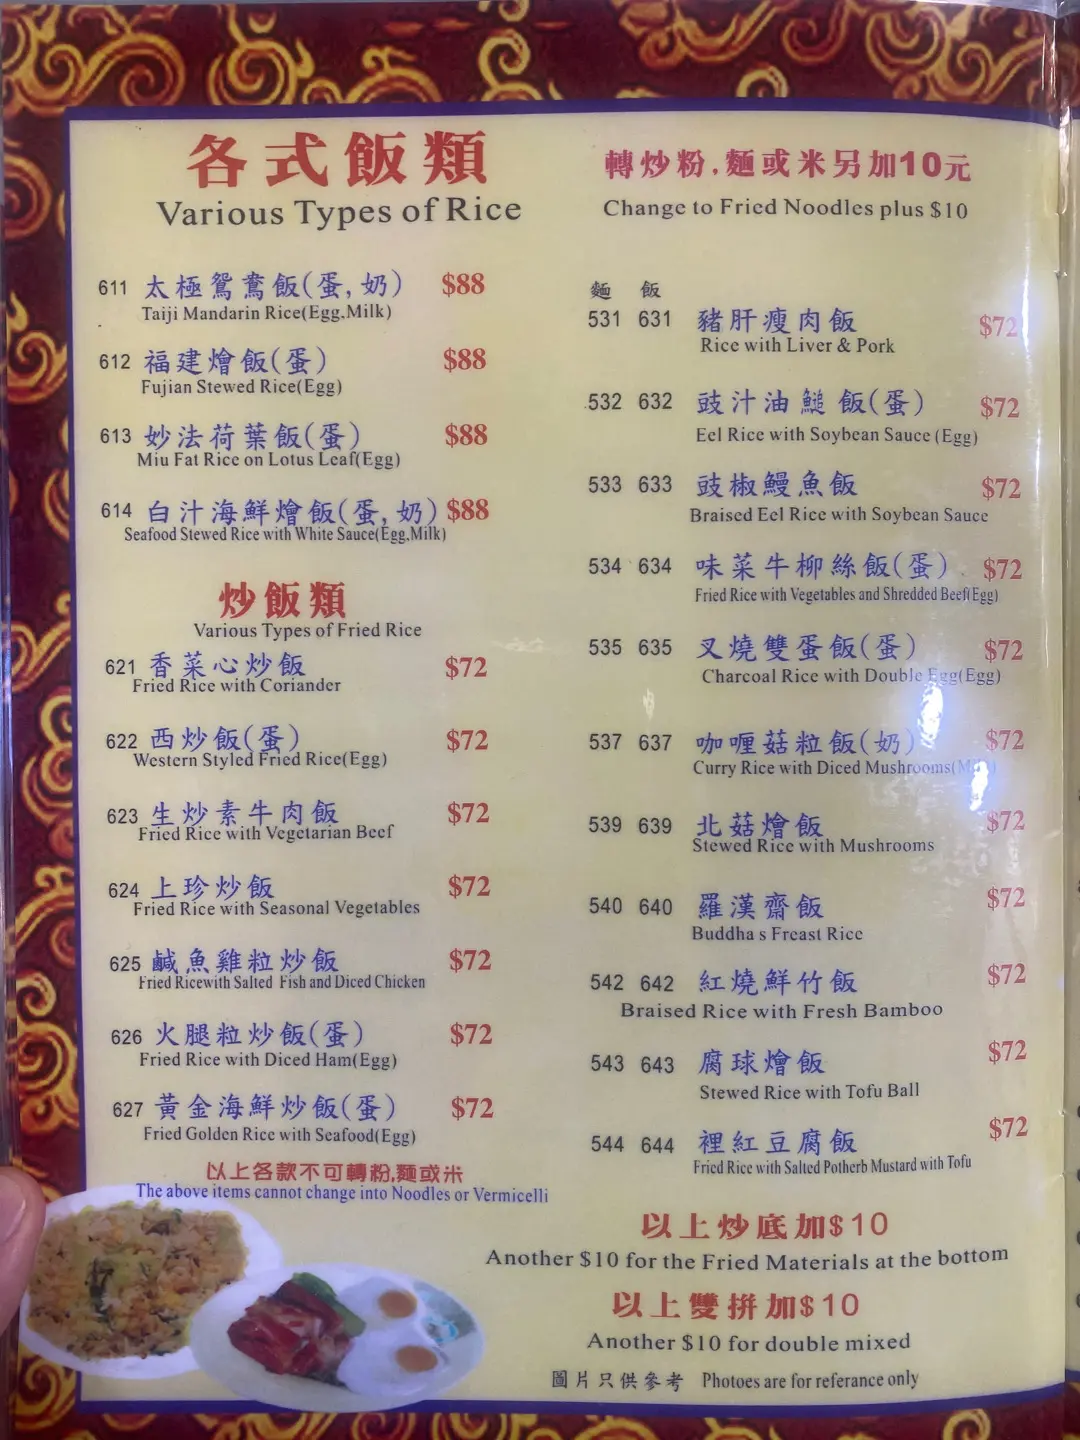 各式飯類
Various Types of Rice
611 太極鴛鴦飯(蛋,奶) $88
Taiji Mandarin Rice(Egg.Milk)
612 福建燴飯(蛋) $88
Fujian Stewed Rice(Egg)
613 妙法荷葉飯(蛋) $88
Miu Fat Rice on Lotus Leaf(Egg)
614 白汁海鮮燴飯(蛋,奶) $88
Seafood Stewed Rice with White Sauce(Egg,Milk)
炒飯類
Various Types of Fried Rice
621 香菜心炒飯 $72
Fried Rice with Coriander
622 西炒飯(蛋) $72
Western Styled Fried Rice(Egg)
623 生炒素牛肉飯 $72
Fried Rice with Vegetarian Beef
624 上珍炒飯 $72
Fried Rice with Seasonal Vegetables
625 鹹魚雞粒炒飯 $72
Fried Ricewith Salted Fish and Diced Chicken
626 火腿粒炒飯(蛋) $72
Fried Rice with Diced Ham(Egg)
627 黃金海鮮炒飯(蛋) $72
Fried Golden Rice with Seafood(Egg)
以上各款不可轉粉,麵或米
The above items cannot change into Noodles or Vermicelli
轉炒粉,麵或米另加10元
Change to Fried Noodles plus $10
麵 飯
531 631 豬肝瘦肉飯 $72
Rice with Liver & Pork
532 632 豉汁油鎚飯(蛋) $72
Eel Rice with Soybean Sauce (Egg)
533 633 豉椒鰻魚飯 $72
Braised Eel Rice with Soybean Sauce
534 634 味菜牛柳絲飯(蛋) $72
Fried Rice with Vegetables and Shredded Beef(Egg)
535 635 叉燒雙蛋飯(蛋) $72
Charcoal Rice with Double Egg(Egg)
537 637 咖喱菇粒飯(奶) $72
Curry Rice with Diced Mushrooms(Milk)
539 639 北菇燴飯 $72
Stewed Rice with Mushrooms
540 640 羅漢齋飯 $72
Buddha s Freast Rice
542 642 紅燒鮮竹飯 $72
Braised Rice with Fresh Bamboo
543 643 腐球燴飯 $72
Stewed Rice with Tofu Ball
544 644 裡紅豆腐飯 $72
Fried Rice with Salted Potherb Mustard with Tofu
以上炒底加$10
Another $10 for the Fried Materials at the bottom
以上雙拼加$10
Another $10 for double mixed
圖片只供參考 Photoes are for referance only